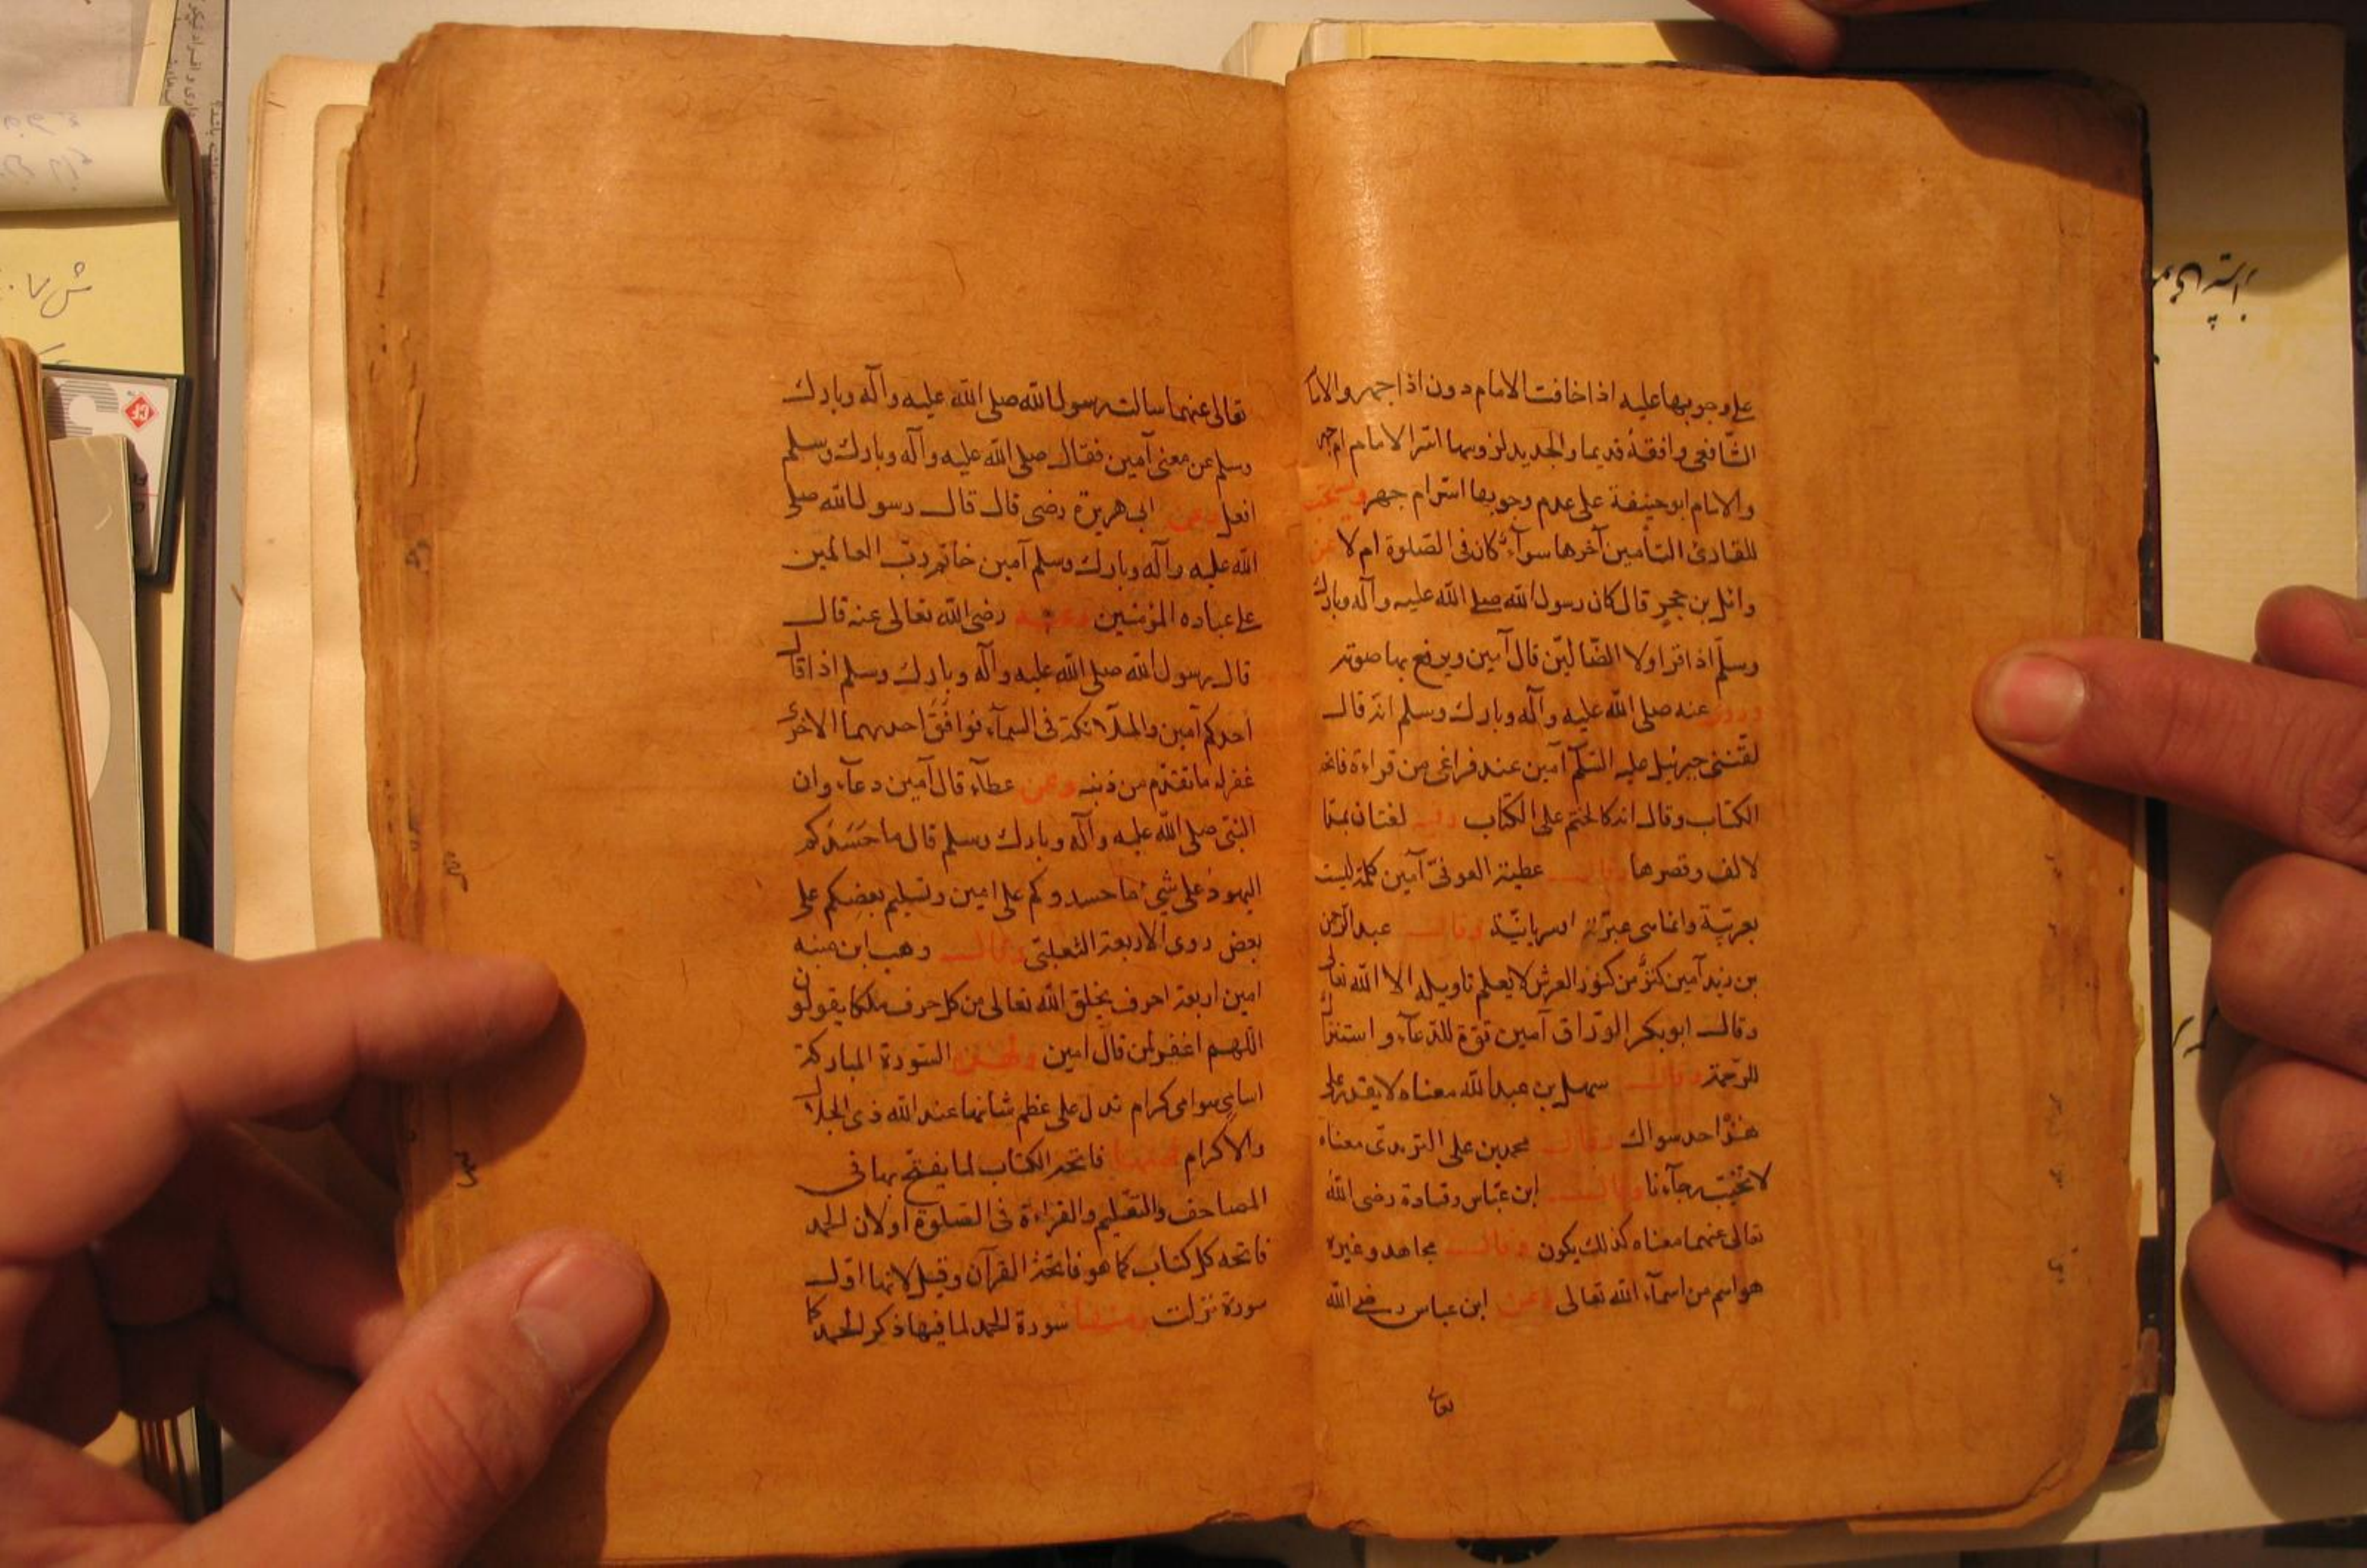 على وجوبها عليه اذا خافت الامام دون اذا جهر والاما
الشّافعى وافقهٔ قديما والجديد لزومها اسّر الامام ام جهر
والامام ابو حنيفة على عدم وجوبها اسّر ام جهر ويستحب
للقارئ التأمين آخرها سوآءٌ كان فى الصّلوة ام لا عن
وائل بن حجرٍ قال كان رسول الله صلى الله عليه وآله وبارك
وسلّم اذا قرا ولا الضّالّين قال آمين ويرفع بها صوته
وروى عنه صلى الله عليه وآله وبارك وسلم انه قال
لقّننى جبرئيل عليه السّلم آمين عند فراغى من قراءة فاتحة
الكتاب وقال انه كالختم على الكتاب وفيه لغتان بمدّ
لالف وقصرها وقال عطية العوفىّ آمين كلمة ليست
بعربيّة وانما هى عبرّية او سريانيّة وقال عبد الرّحمن
بن زيد آمين كنزٌ من كنوز العرش لا يعلم تاويله الا الله تعالى
وقال ابو بكر الورّاق آمين قوّة للدّعآء واستنزال
للرّحمة وقال سهل بن عبد الله معناه لا يقدر على
هذا احد سواك وقال محمد بن على الترمدى معناه
لا تخيّب رجآءنا وقال ابن عبّاس وقتادة رضى الله
تعالى عنهما معناه كذلك يكون وقال مجاهد وغيره
هو اسم من اسمآء الله تعالى وعن ابن عباس رضى الله
تعالى
تعالى عنهما سالت رسول الله صلى الله عليه وآله وبارك
وسلم عن معنى آمين فقال صلى الله عليه وآله وبارك وسلم
افعل وعن ابى هريرة رضى قال قال رسول الله صلى
الله عليه وآله وبارك وسلم آمين خاتم ربّ العالمين
على عباده المؤمنين وعنه رضى الله تعالى عنه قال
قال رسول الله صلى الله عليه وآله وبارك وسلم اذا قال
احدكم آمين والملآئكة فى السمآء فوافق احدهما الاخرى
غفر له ما تقدّم من ذنبه وعن عطآء قال آمين دعآء وان
النبّى صلى الله عليه وآله وبارك وسلم قال ما حَسَدَكم
اليهود على شئ ما حسدوكم على امين وتسليم بعضِكم على
بعض روى الاربعة الثعلبّى وقال وهب ابن منبه
امين اربعة احرف يخلق الله تعالى من كل حرف ملكا يقولون
اللهم اغفر لمن قال امين ولهذه السّورة المباركة
اسامى سوامى كرام تدل على عظم شانها عند الله ذى الجلال
والاكرام فمنها فاتحة الكتاب لما يفتّح بها فى
المصاحف والتّعليم والقراءة فى الصلوة او لان الحمد
فاتحه كل كتاب كما هو فاتحة القرآن وقيل لانها اوّل
سورة نزلت ومنها سورة الحمد لما فيها ذكر الحمد كما